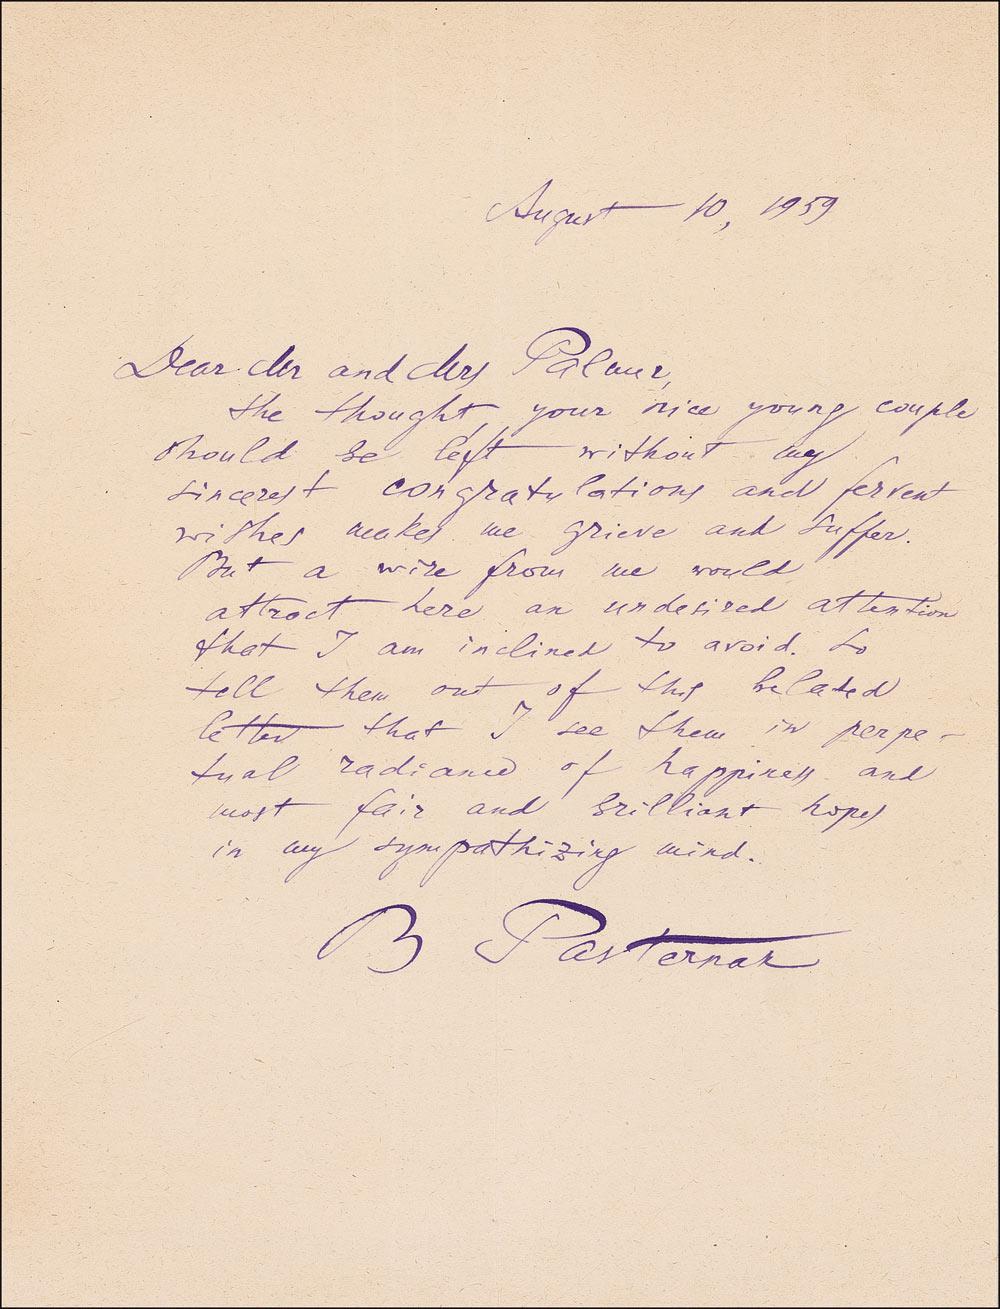 August 10, 1959
Dear Mr and Mrs Palmer,
the thought, your nice young couple
should be left without my
sincerest congratulations and fervent
wishes makes me grieve and suffer.
But a wire from me would
attract here an undesired attention
that I am inclined to avoid. So
tell them out of this belated
letter that I see them in perpe-
tual radiance of happiness and
most fair and brilliant hopes
in my sympathizing mind.
B Pasternak